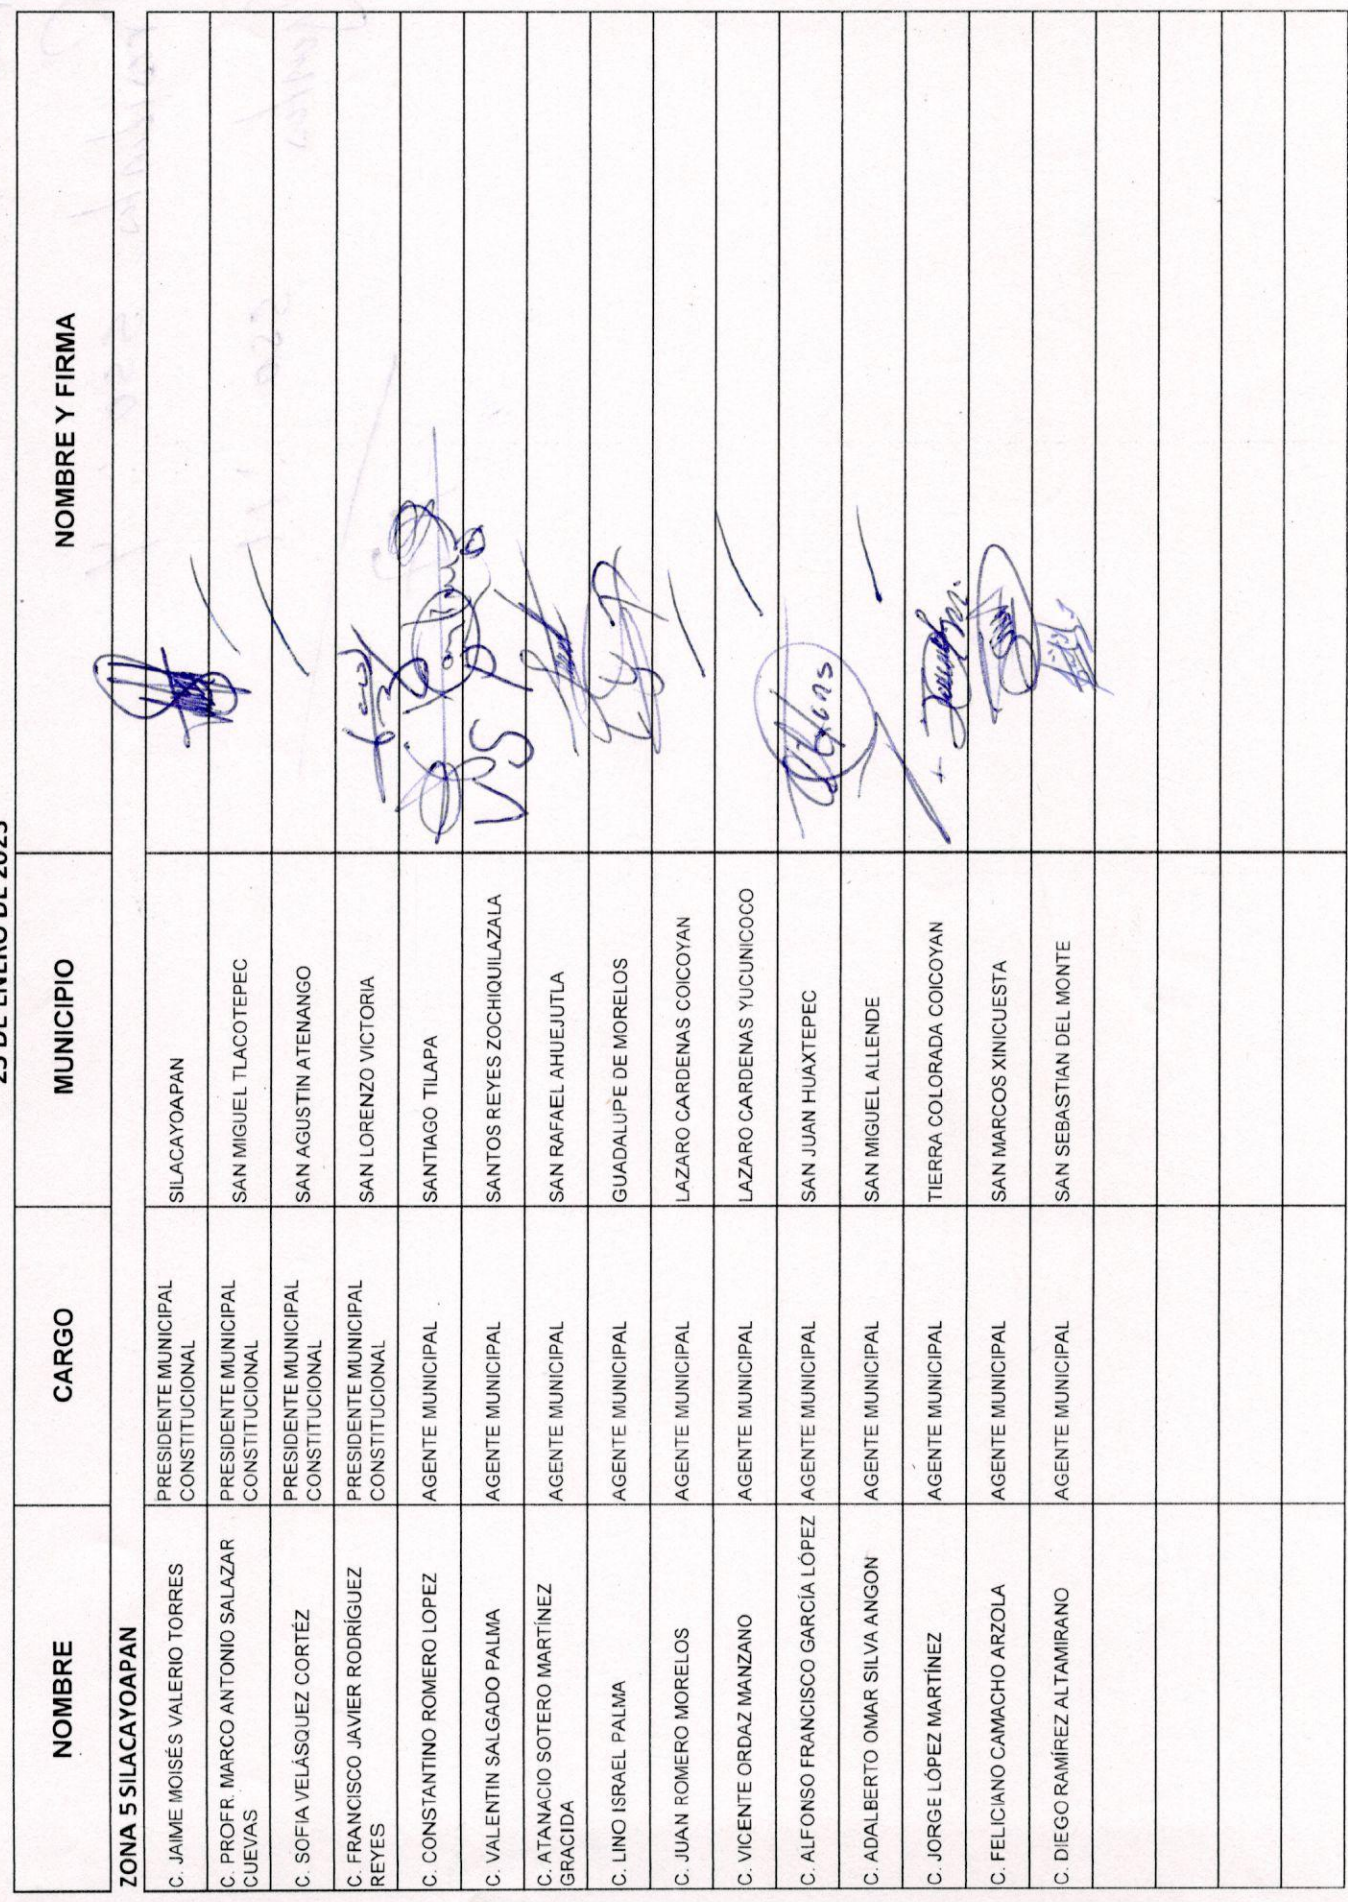 25 DE ENERO DE 2023
NOMBRE CARGO MUNICIPIO NOMBRE Y FIRMA
ZONA 5 SILACAYOAPAN
C. JAIME MOISÉS VALERIO TORRES PRESIDENTE MUNICIPAL CONSTITUCIONAL SILACAYOAPAN
C. PROFR. MARCO ANTONIO SALAZAR CUEVAS PRESIDENTE MUNICIPAL CONSTITUCIONAL SAN MIGUEL TLACOTEPEC
C. SOFIA VELÁSQUEZ CORTÉZ PRESIDENTE MUNICIPAL CONSTITUCIONAL SAN AGUSTIN ATENANGO
C. FRANCISCO JAVIER RODRÍGUEZ REYES PRESIDENTE MUNICIPAL CONSTITUCIONAL SAN LORENZO VICTORIA
C. CONSTANTINO ROMERO LOPEZ AGENTE MUNICIPAL SANTIAGO TILAPA
C. VALENTIN SALGADO PALMA AGENTE MUNICIPAL SANTOS REYES ZOCHIQUILAZALA
C. ATANACIO SOTERO MARTÍNEZ GRACIDA AGENTE MUNICIPAL SAN RAFAEL AHUEJUTLA
C. LINO ISRAEL PALMA AGENTE MUNICIPAL GUADALUPE DE MORELOS
C. JUAN ROMERO MORELOS AGENTE MUNICIPAL LAZARO CARDENAS COICOYAN
C. VICENTE ORDAZ MANZANO AGENTE MUNICIPAL LAZARO CARDENAS YUCUNICOCO
C. ALFONSO FRANCISCO GARCÍA LÓPEZ AGENTE MUNICIPAL SAN JUAN HUAXTEPEC
C. ADALBERTO OMAR SILVA ANGON AGENTE MUNICIPAL SAN MIGUEL ALLENDE
C. JORGE LÓPEZ MARTÍNEZ AGENTE MUNICIPAL TIERRA COLORADA COICOYAN
C. FELICIANO CAMACHO ARZOLA AGENTE MUNICIPAL SAN MARCOS XINICUESTA
C. DIEGO RAMÍREZ ALTAMIRANO AGENTE MUNICIPAL SAN SEBASTIAN DEL MONTE